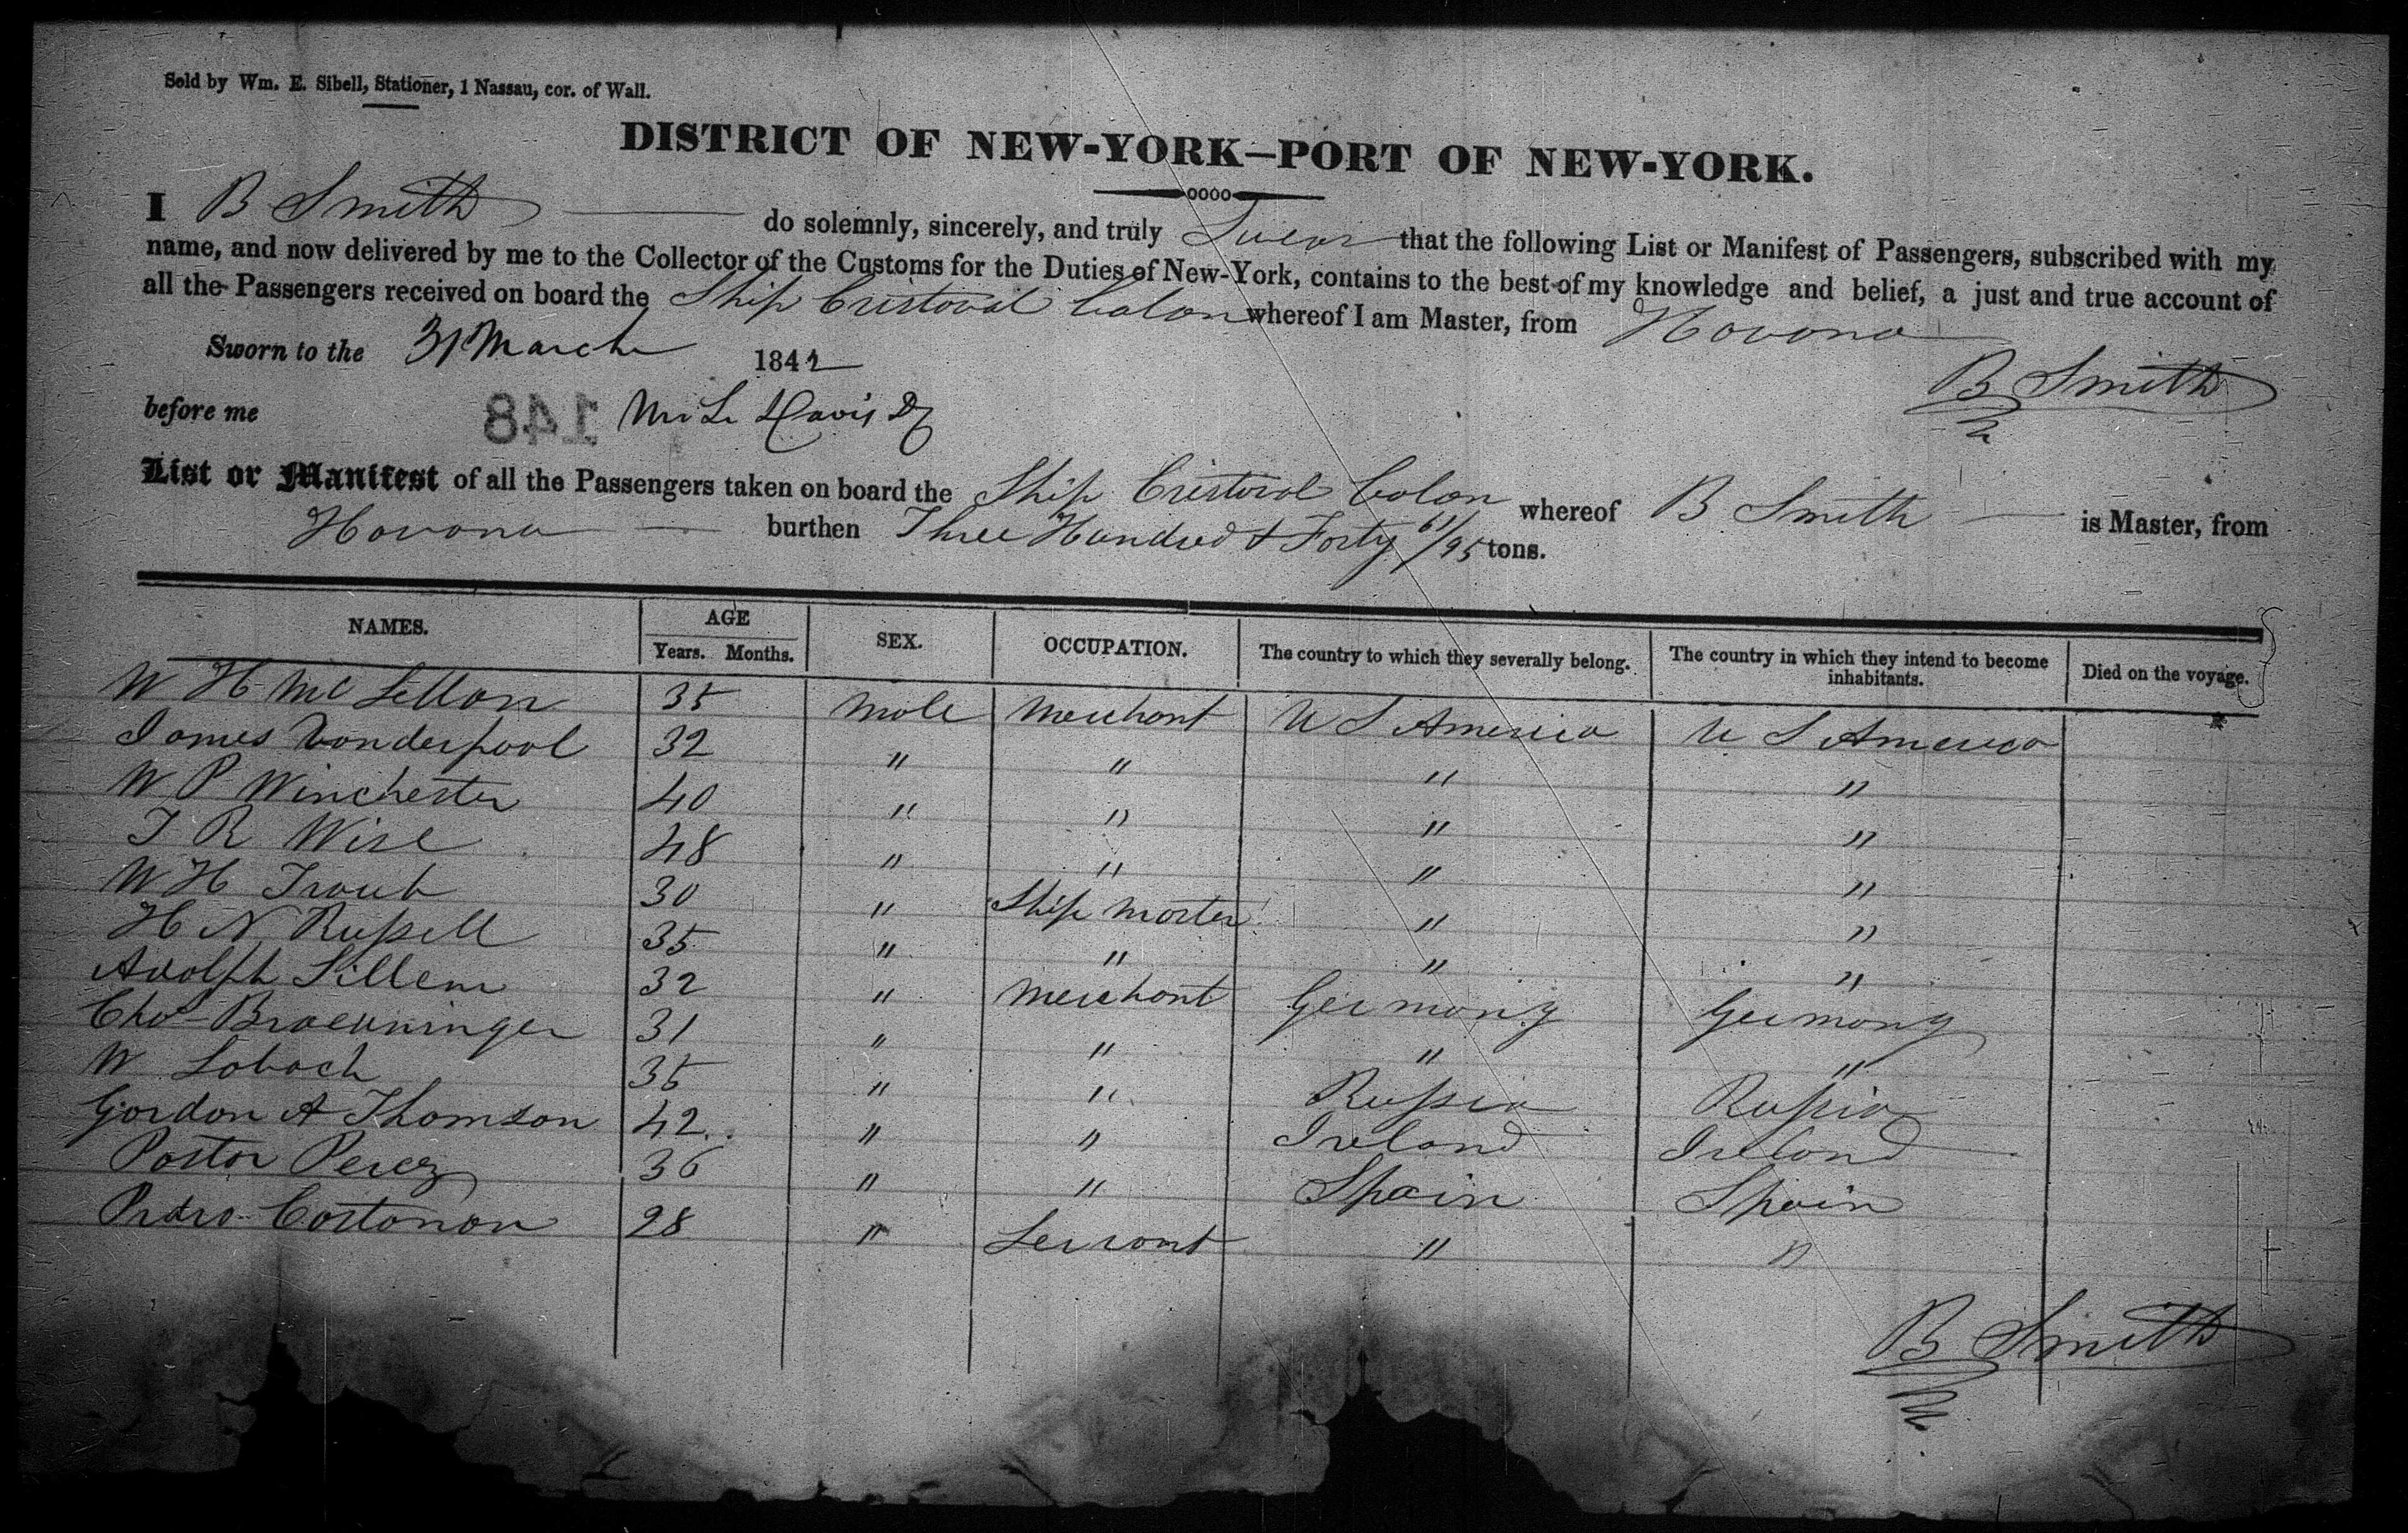 Sold by Wm. E. Sibell, Stationer, 1 Nassau, cor. of Wall.
DISTRICT OF NEW-YORK—PORT OF NEW-YORK.
I B Smith do solemnly, sincerely, and truly Swear that the following List or Manifest of Passengers, subscribed with my
name, and now delivered by me to the Collector of the Customs for the Duties of New-York, contains to the best of my knowledge and belief, a just and true account of
all the Passengers received on board the Ship Cristoval Colon whereof I am Master, from Havana
Sworn to the 31 March 1842
B Smith
before me 148 Davis
List or Manifest of all the Passengers taken on board the Ship Cristoval Colon whereof B Smith is Master, from
Havana burthen Three Hundred & Forty 61/95 tons.
NAMES. AGE Years. Months. SEX. OCCUPATION. The country to which they severally belong. The country in which they intend to become inhabitants. Died on the voyage.
W H McLellan 35 Male Merchant U S America U S America
James Vanderpool 32 " " " "
W P Winchester 40 " " " "
T R Wise 48 " " " "
W H 30 " Ship Master " "
H N Russell 35 " " " "
Adolph Sillem 32 " Merchant Germany Germany
Chs 31 " " " "
W Lobach 35 " " Russia Russia
Gordon A Thomson 42 " " Ireland Ireland
Pastor Perez 36 " " Spain Spain
Pedro 28 " Servant " "
B Smith